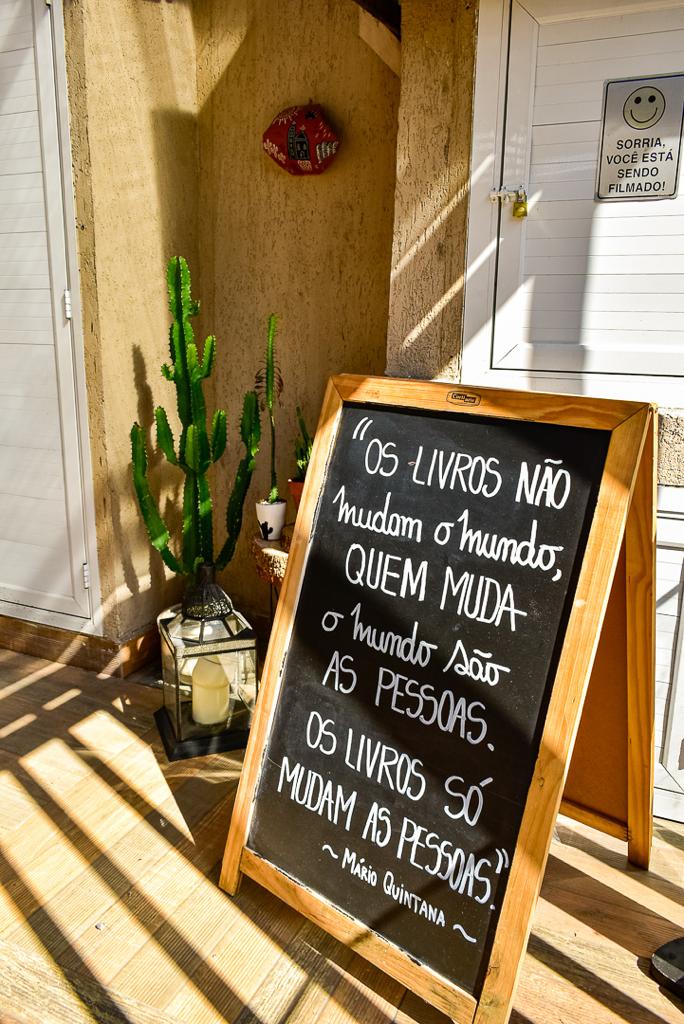 SORRIA,
VOCÊ ESTÁ
SENDO
FILMADO!
"OS LIVROS NÃO
mudam o mundo,
QUEM MUDA
o mundo são
AS PESSOAS.
OS LIVROS SÓ
MUDAM AS PESSOAS."
~ MÁRIO QUINTANA ~